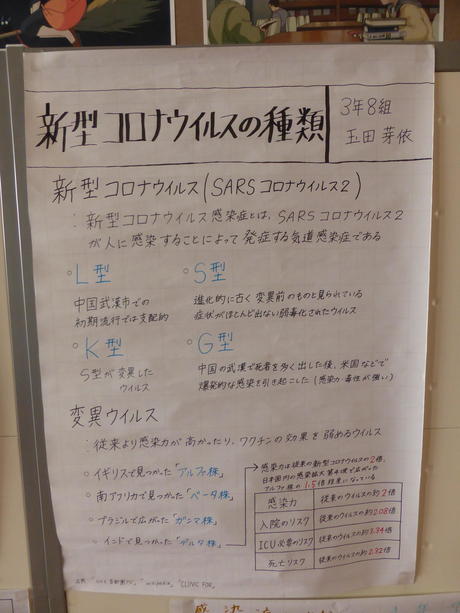 新型コロナウイルスの種類
3年8組
玉田 芽依
新型コロナウイルス(SARSコロナウイルス2)
:新型コロナウイルス感染症とは、SARSコロナウイルス2
が人に感染することによって発症する気道感染症である
○L型
中国武漢市での
初期流行では支配的
○S型
進化的に古く変異前のものと見られている
症状がほとんど出ない弱毒化されたウイルス
○K型
S型が変異した
ウイルス
○G型
中国の武漢で死者を多く出した後、米国などで
爆発的な感染を引き起こした(感染力・毒性が強い)
変異ウイルス
:従来より感染力が高かったり、ワクチンの効果を弱めるウイルス
○イギリスで見つかった「アルファ株」
○南アフリカで見つかった「ベータ株」
○ブラジルで広がった「ガンマ株」
○インドで見つかった「デルタ株」
感染力は従来の新型コロナウイルスの2倍、
日本国内の感染拡大第4波で広がった
アルファ株の1.5倍程度になっている
感染力 従来のウイルスの約2倍
入院のリスク 従来のウイルスの約2.08倍
ICU必要のリスク 従来のウイルスの約3.34倍
死亡リスク 従来のウイルスの約2.32倍
"CLINIC FOR"